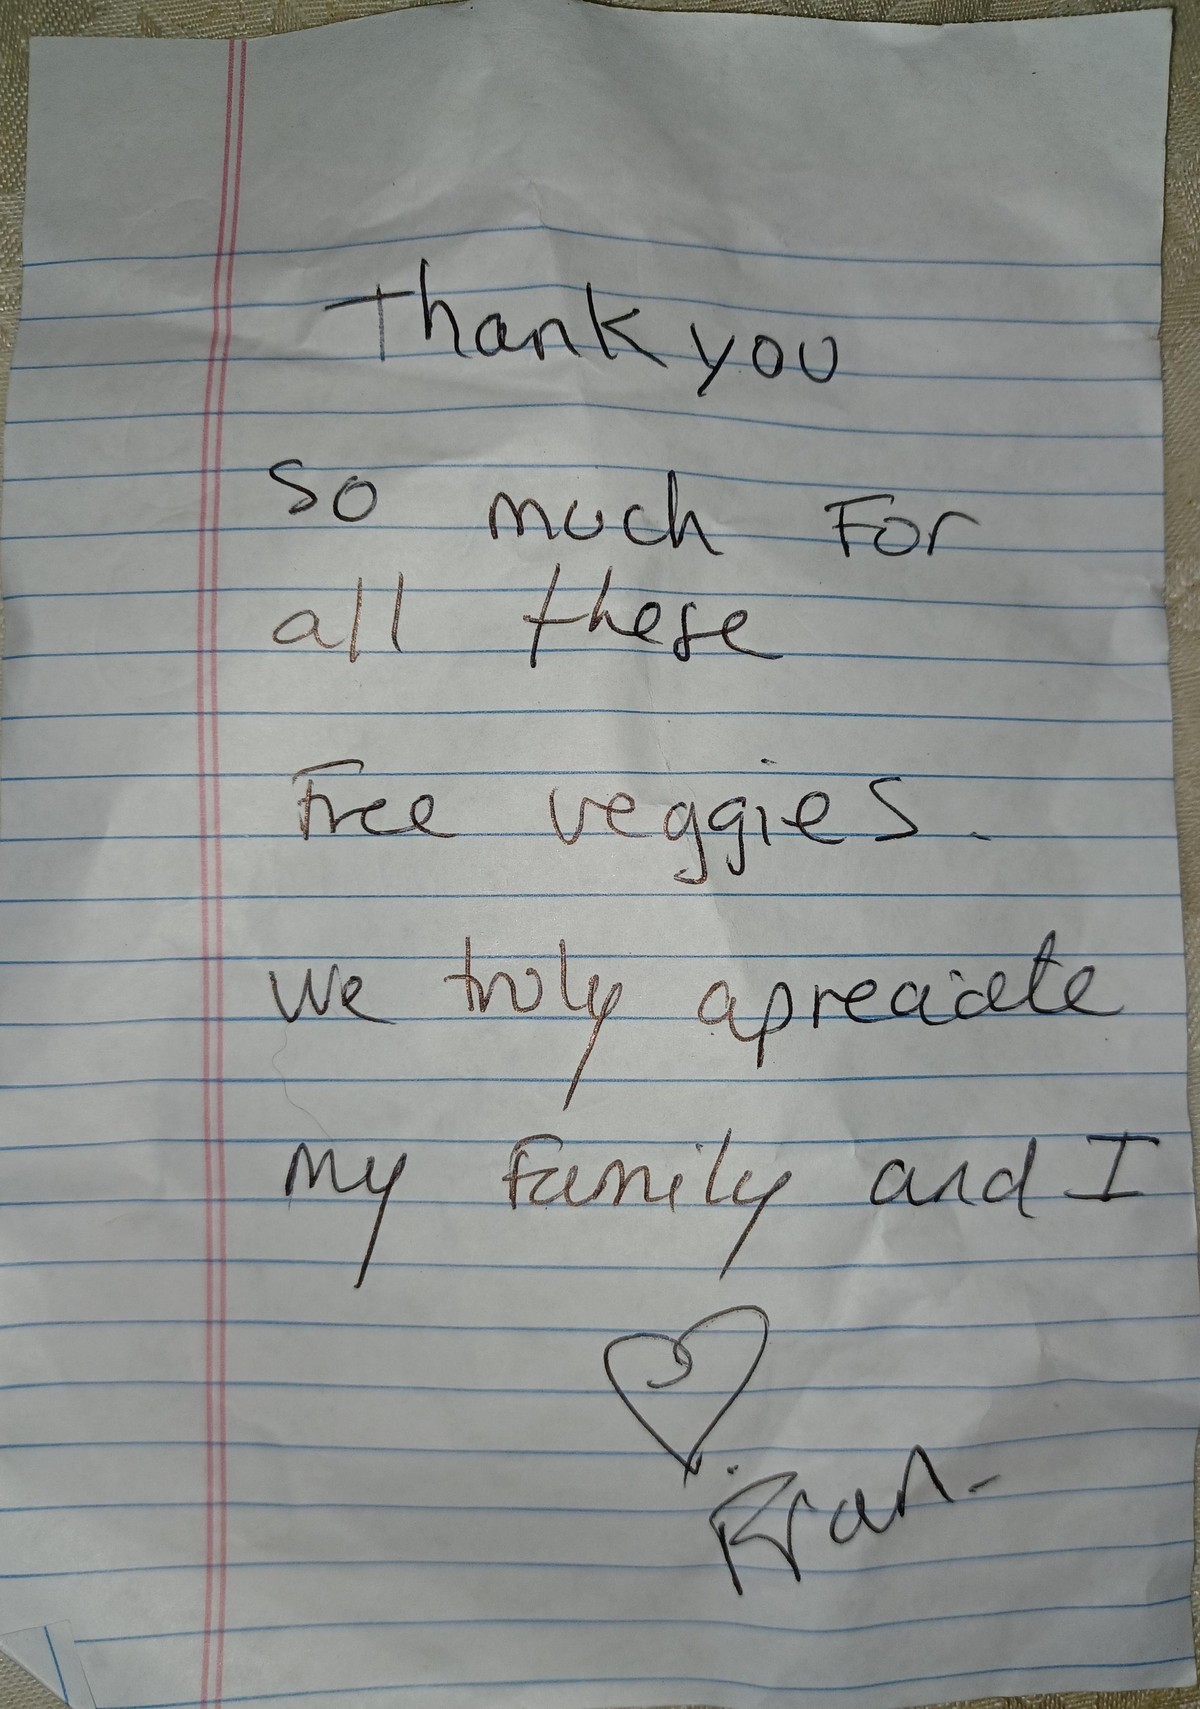 Thank you
So much For
all these
Free veggies.
We truly apreaciate
my Family and I